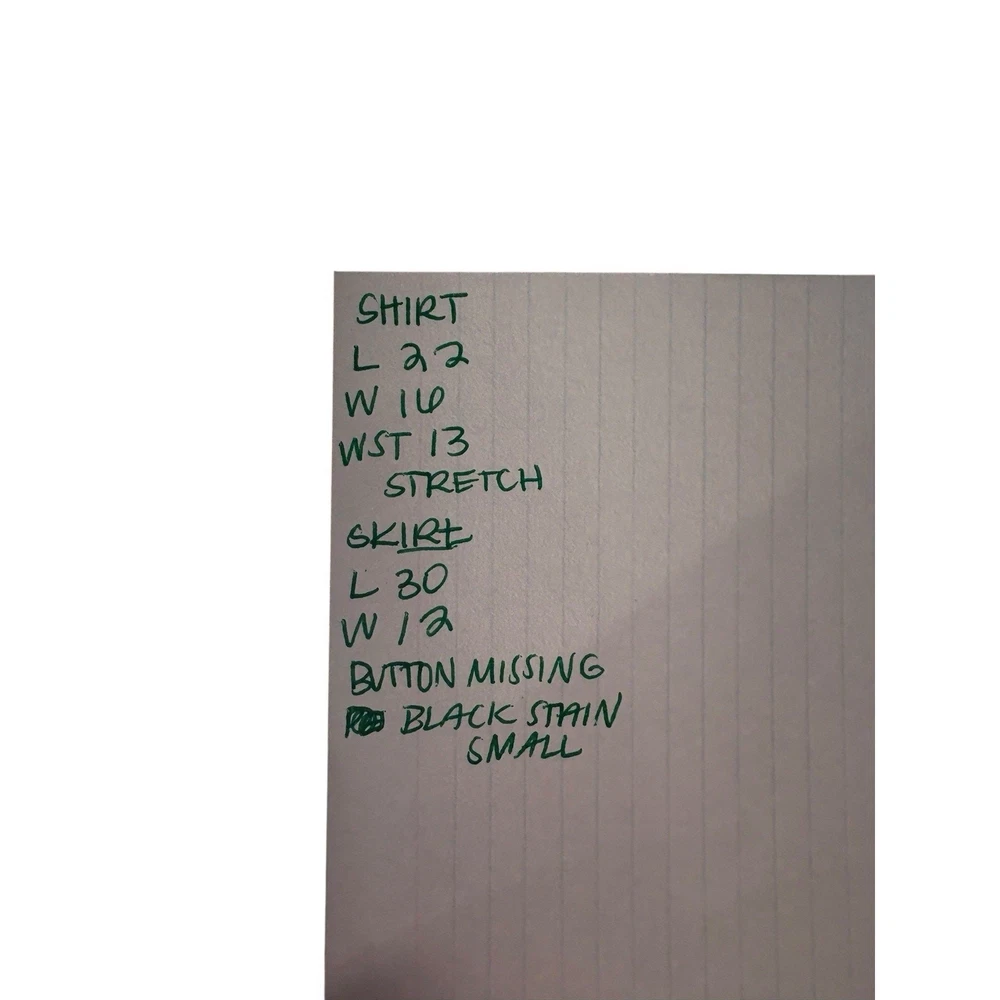 SHIRT
L 22
W 16
WST 13
STRETCH
SKIRt
L 30
W 12
BUTTON MISSING
BLACK STAIN
SMALL